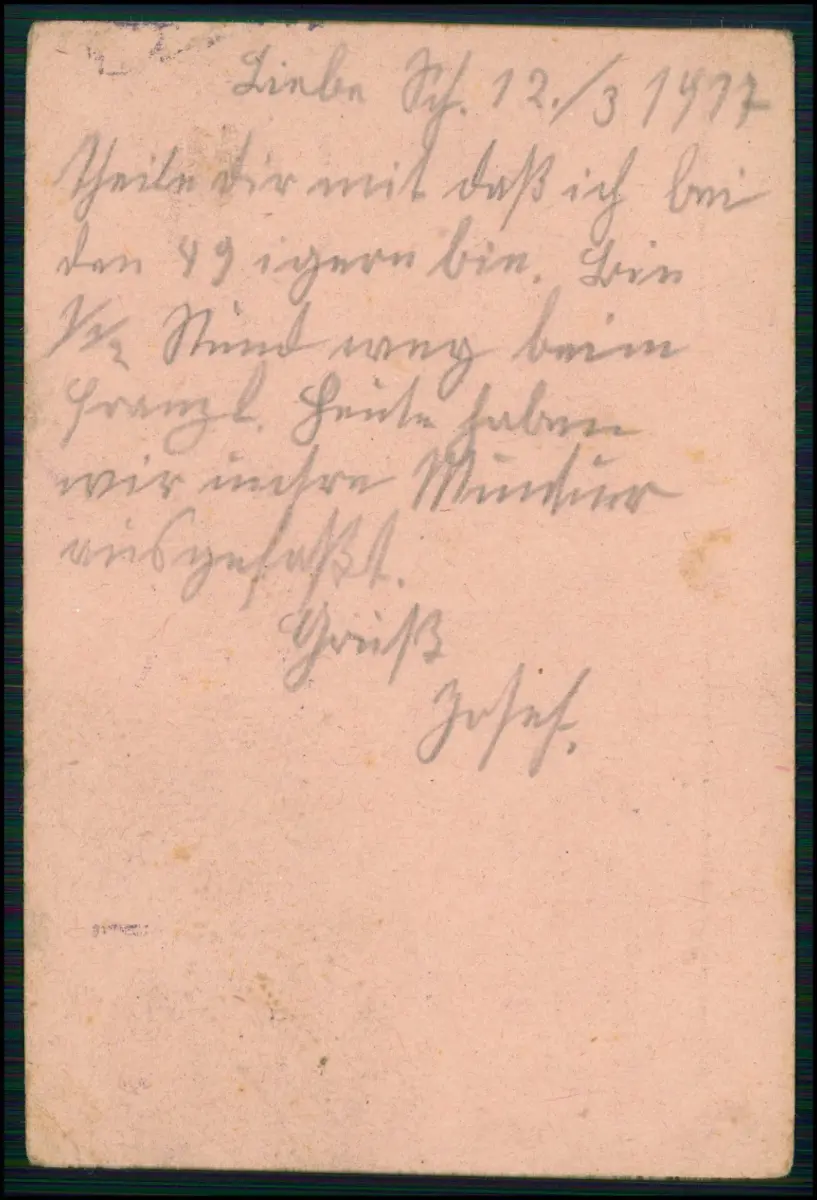 Liebe Sch. 12./3 1917
Theile dir mit daß ich bei
den 49 igern bin. Bin
1/2 Stund weg beim
Franzl. Heute haben
wir unsre Muntur
ausgefaßt.
Gruß
Josef.